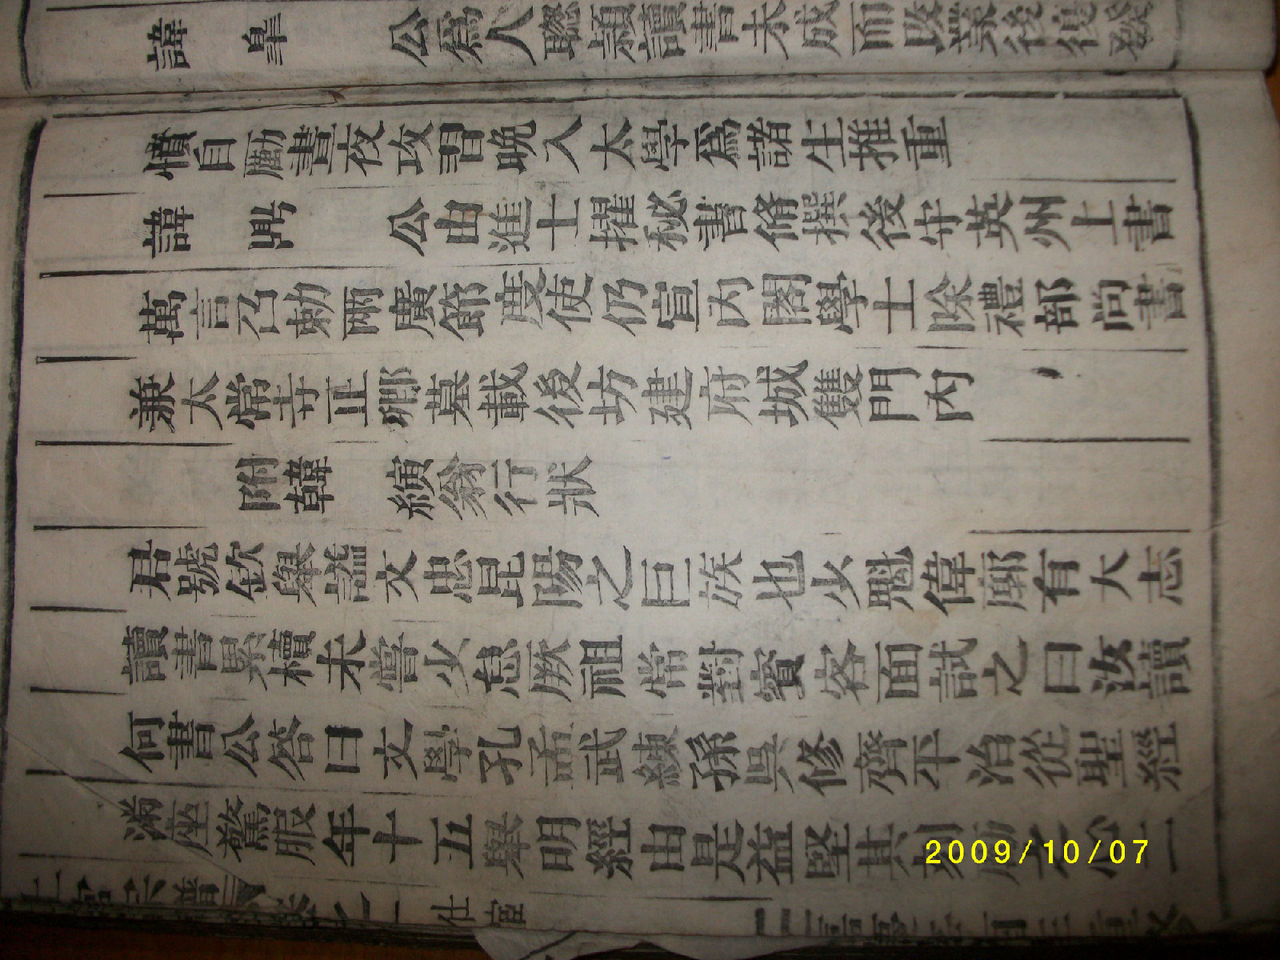 諱 皐 公為人聰頴讀書未成而改業後復發
憤自勵晝夜攻習晚入太學為諸生推重
諱 㒷 公由進士擢秘書脩撰後守英州上書
萬言召勅兩廣節度使仍宣內閣學士除禮部尚書
兼太常寺正卿墓載後坊建府城雙門內
附韓 縯翁行狀
君號欽舉謚文忠昆陽之巨族也少魁偉廓有大志
讀書累櫝未嘗少怠厥祖常對賓客面試之曰汝讀
何書公答曰文學孔孟武練孫吳修齊平治從聖經
滿座驚服年十五舉明經由是益堅其
2009/10/07